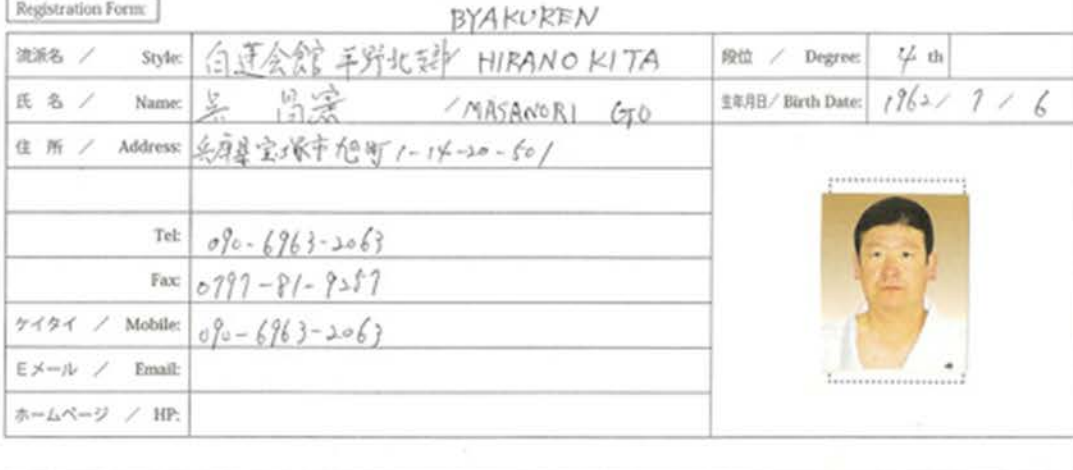 Registration Form:
BYAKUREN
流派名 / Style: 白蓮会館 平野北支部 HIRANO KITA
段位 / Degree: 4 th
氏 名 / Name: 呉 昌憲 / MASANORI GO
生年月日 / Birth Date: 1962 / 7 / 6
住 所 / Address: 兵庫県宝塚市旭町1-14-20-501
Tel: 090-6963-2063
Fax: 0797-81-9257
ケイタイ / Mobile: 090-6963-2063
Eメール / Email:
ホームページ / HP: